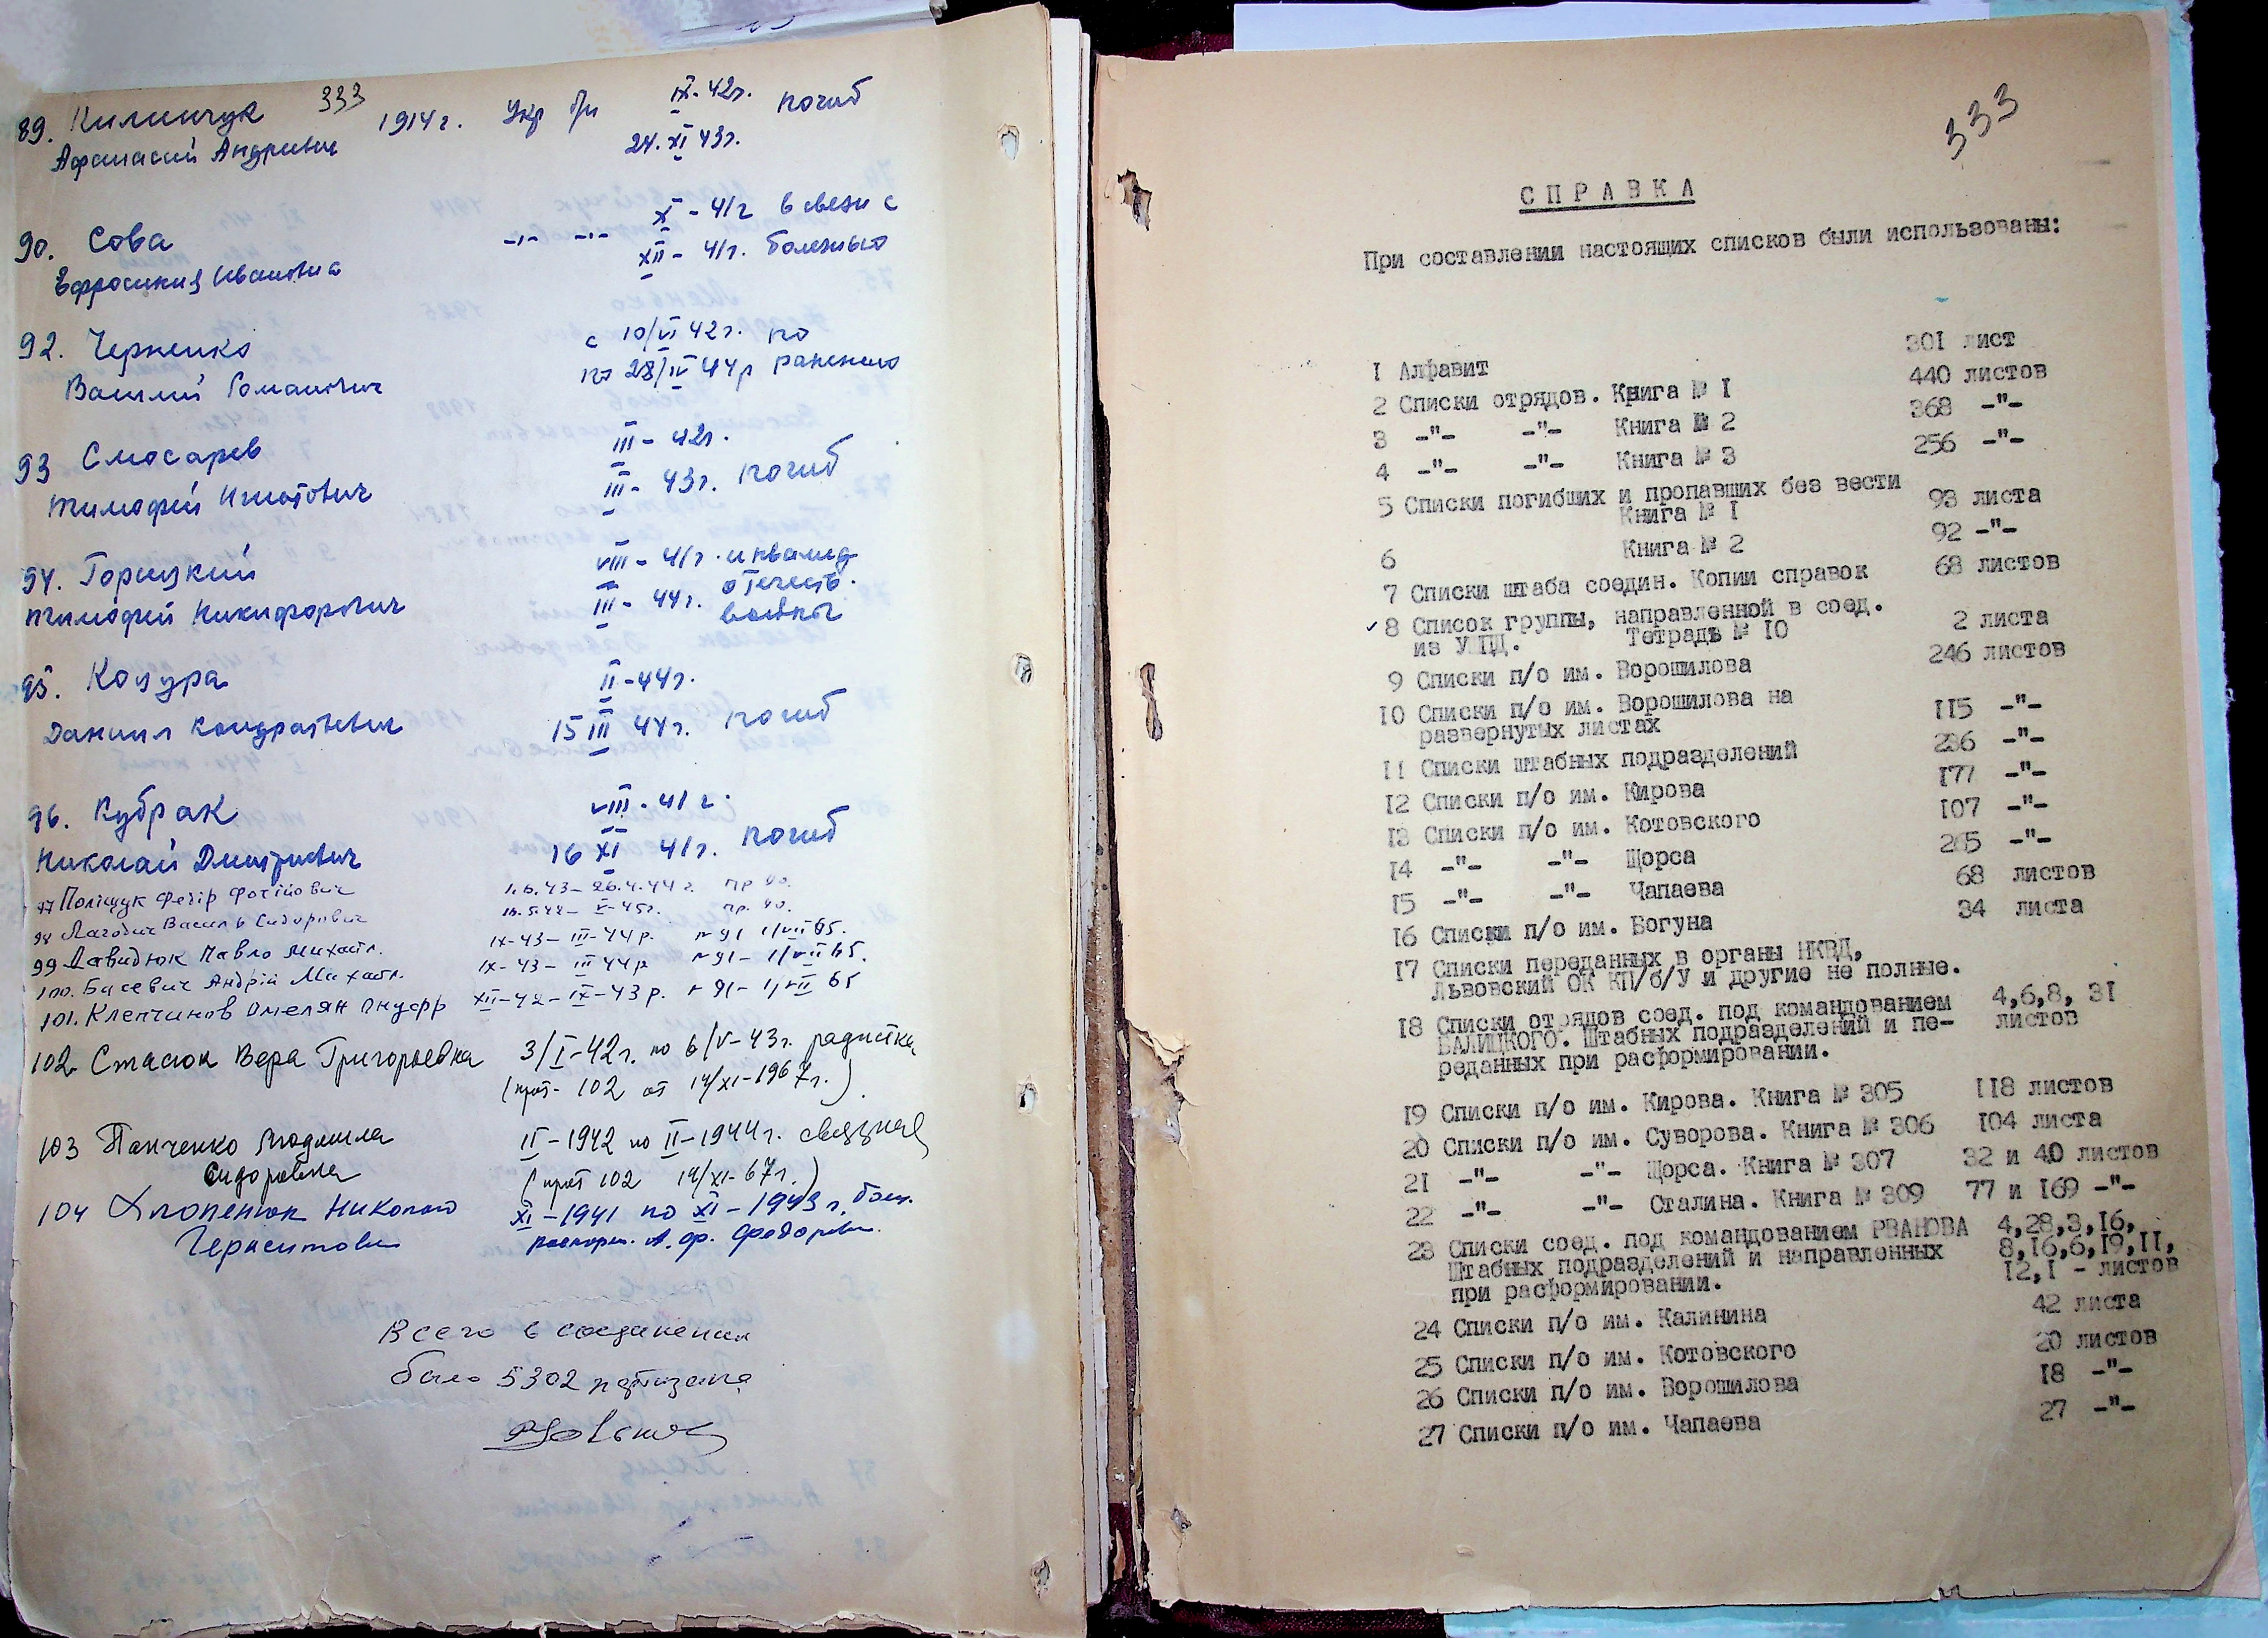 333
89. Килинчук 1914 г. Укр б/п IX-42г. погиб
Афанасий Андреевич 24. XI 43г.
90. Сова -"- -"- X - 41г в связи с
Ефросиния Ивановна XII - 41г. болезнью
92. Черненко с 10/VI 42г. по
Василий Романович по 28/IV 44г ранению
93 Слюсарев III - 42г.
Тимофей Игнатович III - 43г. погиб
94. Горицкий VIII - 41г. инвалид
Тимофей Никифорович III - 44г. отечеств.
войны
95. Коцура II-44г.
Даниил Кондратьевич 15 III 44г. погиб
96. Кубрак VIII. 41 г.
Николай Дмитриевич 16 XI 41г. погиб
97 Поліщук Федір Фотійович 1.6.43 – 26.4.44 г. пр 90.
98 Василь Сидорович V-45г. пр. 90.
99 Давидюк Павло Михайл. IX-43 – III-44р. 91 1/VII 65.
100. Басевич Андрій Михайл. IX-43 – III 44р 91 – 1/VII 65.
101. Клепчинов Омелян Онуфр XII-42 – IX-43 р. 91 – 1/VII 65
102. Стасюк Вера Григорьевна 3/I-42г. по 6/V-43г. радистка
(прот. 102 от 14/XI-1967г.)
103 Панченко Людмила II-1942 по II-1944г. связная
Сидоровна (прот 102 14/XI-67г.)
104 Хлопенюк Николай XI-1941 по XI-1943г. боец.
Герасимович распоряж. А. Ф. Федорова.
Всего в соединении
было 5302 партизана
333
СПРАВКА
При составлении настоящих списков были использованы:
1 Алфавит 301 лист
2 Списки отрядов. Книга № 1 440 листов
3 -"- -"- Книга № 2 368 -"-
4 -"- -"- Книга № 3 256 -"-
5 Списки погибших и пропавших без вести
Книга № 1 93 листа
6 Книга № 2 92 -"-
7 Списки штаба соедин. Копии справок 68 листов
✓ 8 Список группы, направленной в соед.
из УШПД. Тетрадь № 10 2 листа
9 Списки п/о им. Ворошилова 246 листов
10 Списки п/о им. Ворошилова на
развернутых листах 115 -"-
11 Списки штабных подразделений 236 -"-
12 Списки п/о им. Кирова 177 -"-
13 Списки п/о им. Котовского 107 -"-
14 -"- -"- Щорса 265 -"-
15 -"- -"- Чапаева 68 листов
16 Списки п/о им. Богуна 34 листа
17 Списки переданных в органы НКВД,
Львовский ОК КП/б/У и другие не полные.
18 Списки отрядов соед. под командованием 4,6,8, 31
БАЛИЦКОГО. Штабных подразделений и пе- листов
реданных при расформировании.
19 Списки п/о им. Кирова. Книга № 305 118 листов
20 Списки п/о им. Суворова. Книга № 306 104 листа
21 -"- -"- Щорса. Книга № 307 32 и 40 листов
22 -"- -"- Сталина. Книга № 309 77 и 169 -"-
23 Списки соед. под командованием РВАНОВА 4,28,3,16,
Штабных подразделений и направленных 8,16,6,19,11,
при расформировании. 12,1 - листов
24 Списки п/о им. Калинина 42 листа
25 Списки п/о им. Котовского 20 листов
26 Списки п/о им. Ворошилова 18 -"-
27 Списки п/о им. Чапаева 27 -"-